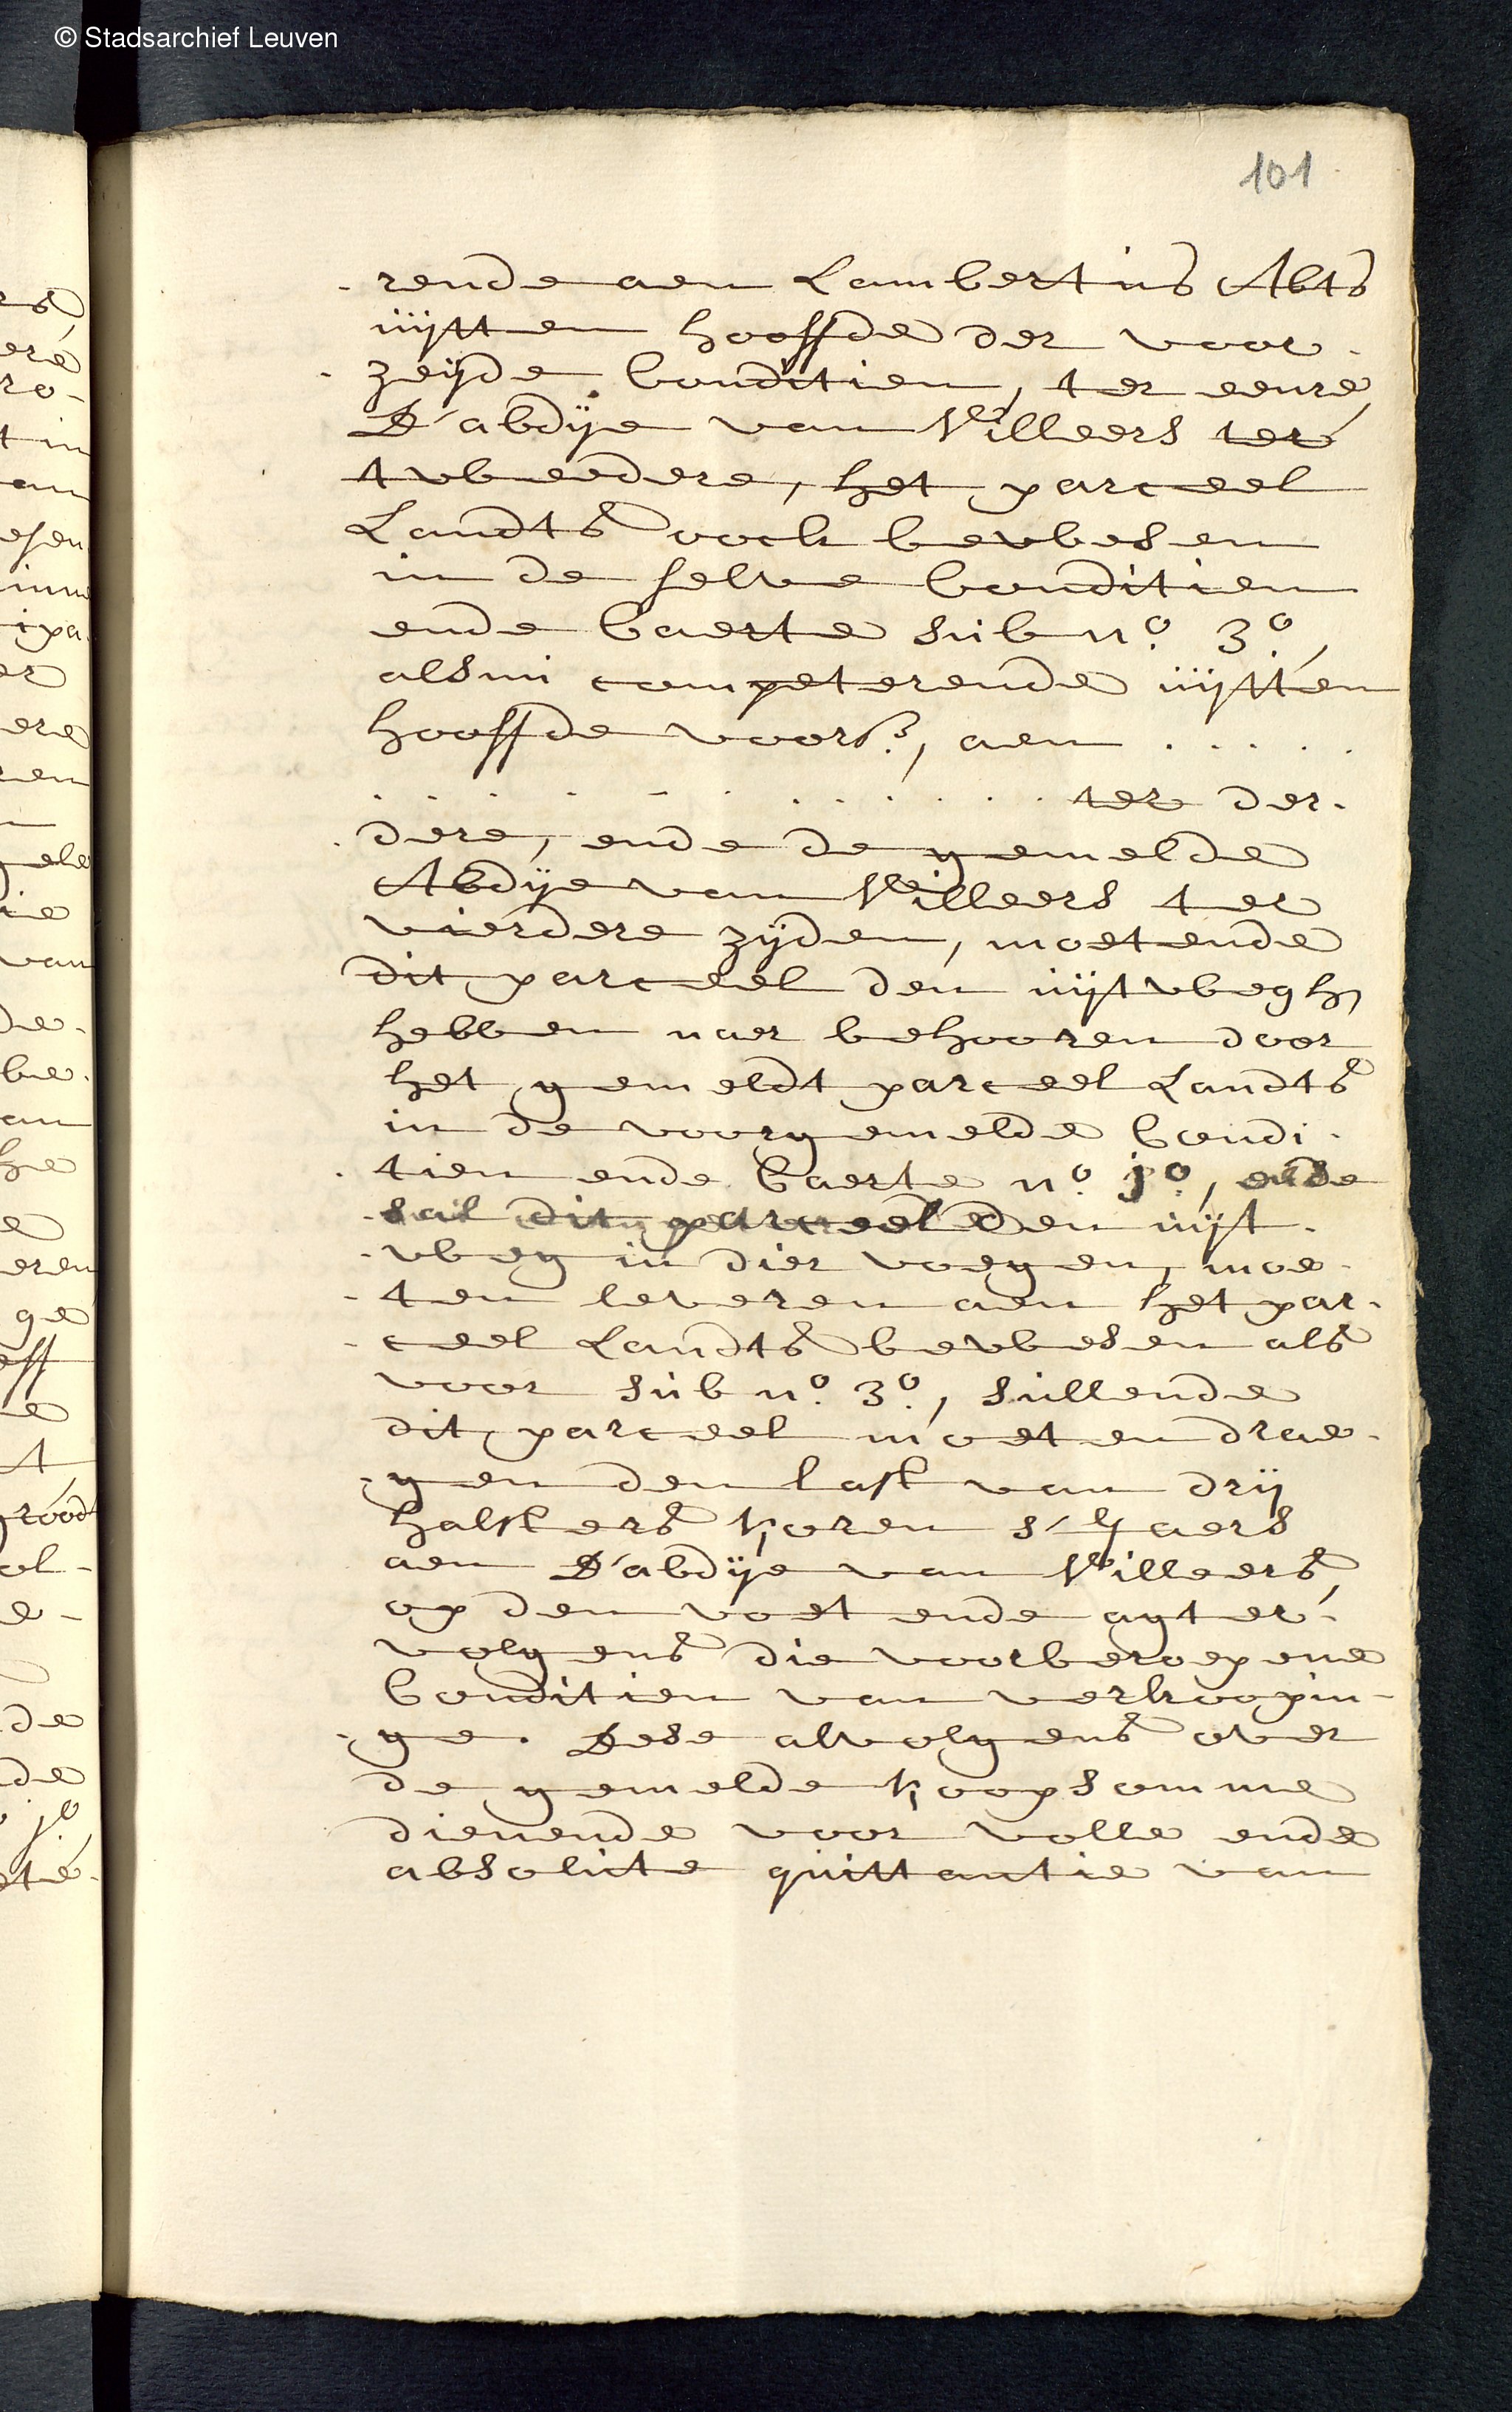 © Stadsarchief Leuven
101
-rende aen Lambertus Abts
uijtten hooffde der voor-
-zeijde Conditien, ter eenre,
D'abdije van Villeers ter
tweedere, het parceel
Landts oock bewesen
in de selve Conditien
ende Caerte sub n.o 3.o,
alsnu competerende uijtten
hooffde voors., aen . . . . .
. . . . . . . . . . . . ter der-
-dere, ende de gemelde
Abdije van Villeers ter
vierdere zijden, moetende
dit parceel den uijtwegh
hebben naer behooren door
het gemeldt parceel Landts
in de voorgemelde Condi-
-tien ende Caerte n.o j.o, ende
sal dit parceel den uijt-
-weg in dier voegen, moe-
-ten leveren aen het par-
-ceel Landts bewesen als
voor sub n.o 3.o, sullende
dit parceel moeten drae-
-gen den last van drij
halsters koren s'jaers
aen D'abdije van Villeers,
op den voet ende agter-
volgens die voorberoepene
Conditien van verkoopin-
-ge. Dese alvolgens over
de gemelde koopsomme
dienende voor volle ende
absolute quittantie van